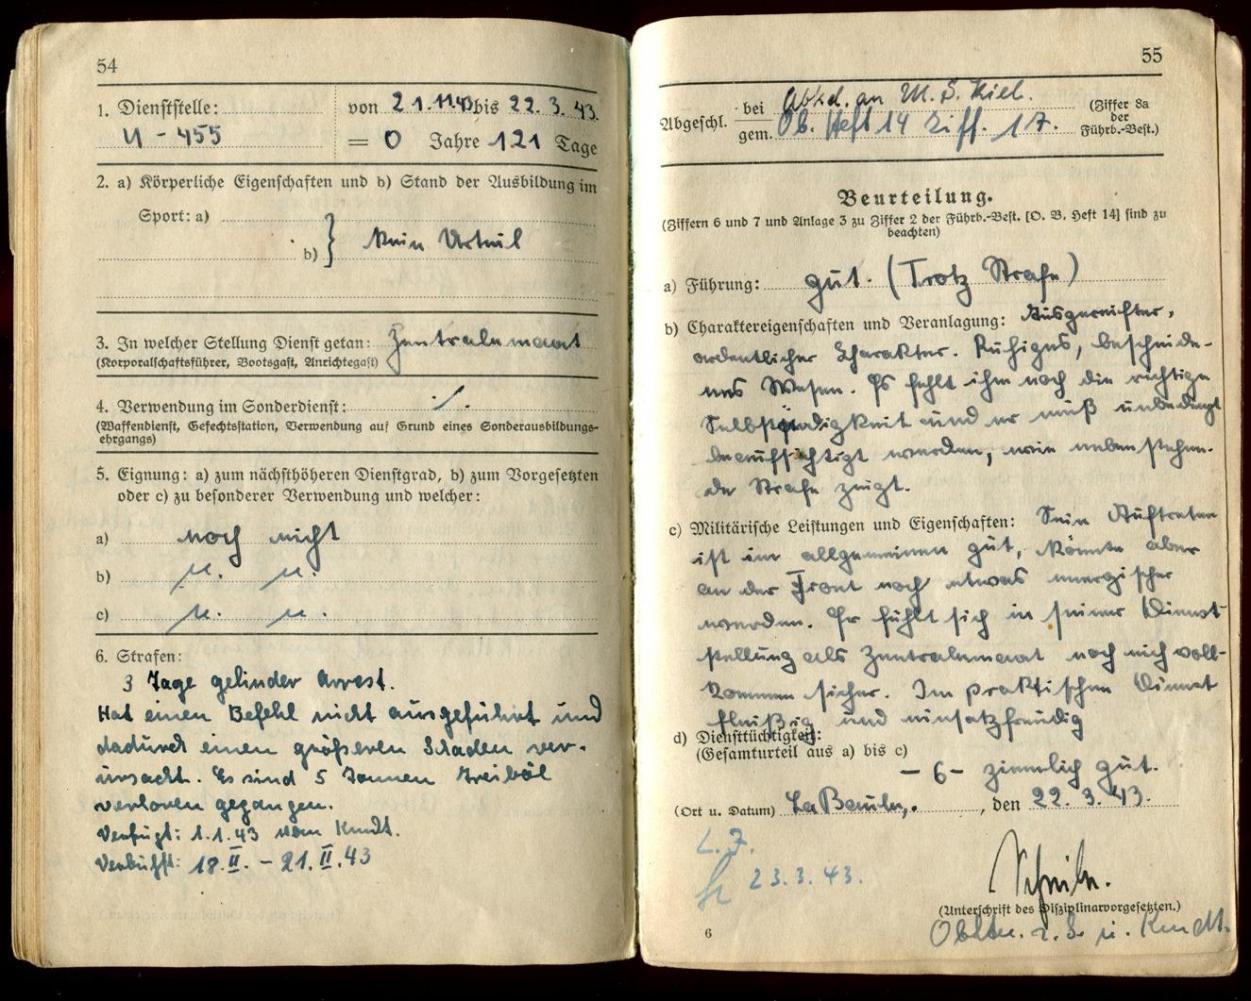 54
1. Dienststelle: von 21.11.43 bis 22.3.43.
U - 455 = 0 Jahre 121 Tage
2. a) Körperliche Eigenschaften und b) Stand der Ausbildung im
Sport: a)
b) } Kein Urteil
3. In welcher Stellung Dienst getan: Zentralemaat
(Korporalschaftsführer, Bootsgast, Anrichtegast)
4. Verwendung im Sonderdienst: ./.
(Waffendienst, Gefechtsstation, Verwendung auf Grund eines Sonderausbildungs-
ehrgangs)
5. Eignung: a) zum nächsthöheren Dienstgrad, b) zum Vorgesetzten
oder c) zu besonderer Verwendung und welcher:
a) noch nicht
b) n. n.
c) n. n.
6. Strafen:
3 Tage gelinder Arrest.
Hat einen Befehl nicht ausgeführt und
dadurch einen größeren Schaden ver-
ursacht. Es sind 5 Tonnen Treiböl
verloren gegangen.
Verfügt: 1.1.43 vom Kmdt.
Verbüßt: 18.II. - 21.II.43
55
Abgeschl. bei Abkd. an M.S. Kiel.
gem. Ob. Heft 14 Ziff. 17.
(Ziffer 8a
der
Führb.-Best.)
Beurteilung.
(Ziffern 6 und 7 und Anlage 3 zu Ziffer 2 der Führb.-Best. [O. B. Heft 14] sind zu
beachten)
a) Führung: gut. (Trotz Strafe)
b) Charaktereigenschaften und Veranlagung: Ausgereifter,
ordentlicher Charakter. Ruhiges, bescheide-
nes Wesen. Es fehlt ihm noch die richtige
Selbständigkeit und er muß unbedingt
beaufsichtigt werden, wie nebenstehen-
de Strafe zeigt.
c) Militärische Leistungen und Eigenschaften: Sein Auftreten
ist im allgemeinen gut, könnte aber
an der Front noch etwas energischer
werden. Er fühlt sich in seiner Dienst-
stellung als Zentralemaat noch nich voll-
kommen sicher. Im praktischen Dienst
fleißig und einsatzfreudig
d) Diensttüchtigkeit:
(Gesamturteil aus a) bis c)
- 6 - ziemlich gut.
(Ort u. Datum) La Baule, den 22.3.43.
L. I.
23.3.43.
(Unterschrift des Disziplinarvorgesetzten.)
Obltn. z. S. u. Kmdt.
6